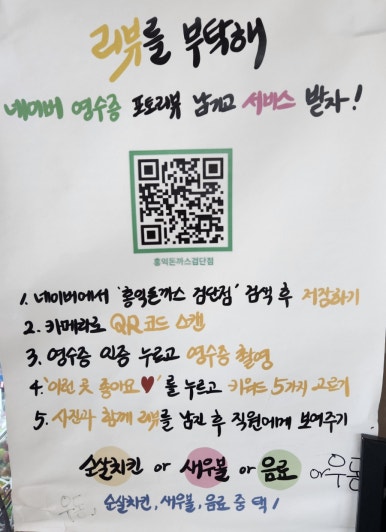 리뷰를 부탁해
네이버 영수증 포토리뷰 남기고 서비스 받자!
홍익돈까스검단점
1. 네이버에서 '홍익돈까스 검단점' 검색 후 저장하기
2. 카메라로 QR코드 스캔
3. 영수증 인증 누르고 영수증 촬영
4. '이런 점 좋아요♥'를 누르고 키워드 5가지 고르기
5. 사진과 함께 리뷰를 남긴 후 직원에게 보여주기
순살치킨 or 새우볼 or 음료 or 우동
순살치킨, 새우볼, 음료 중 택 1